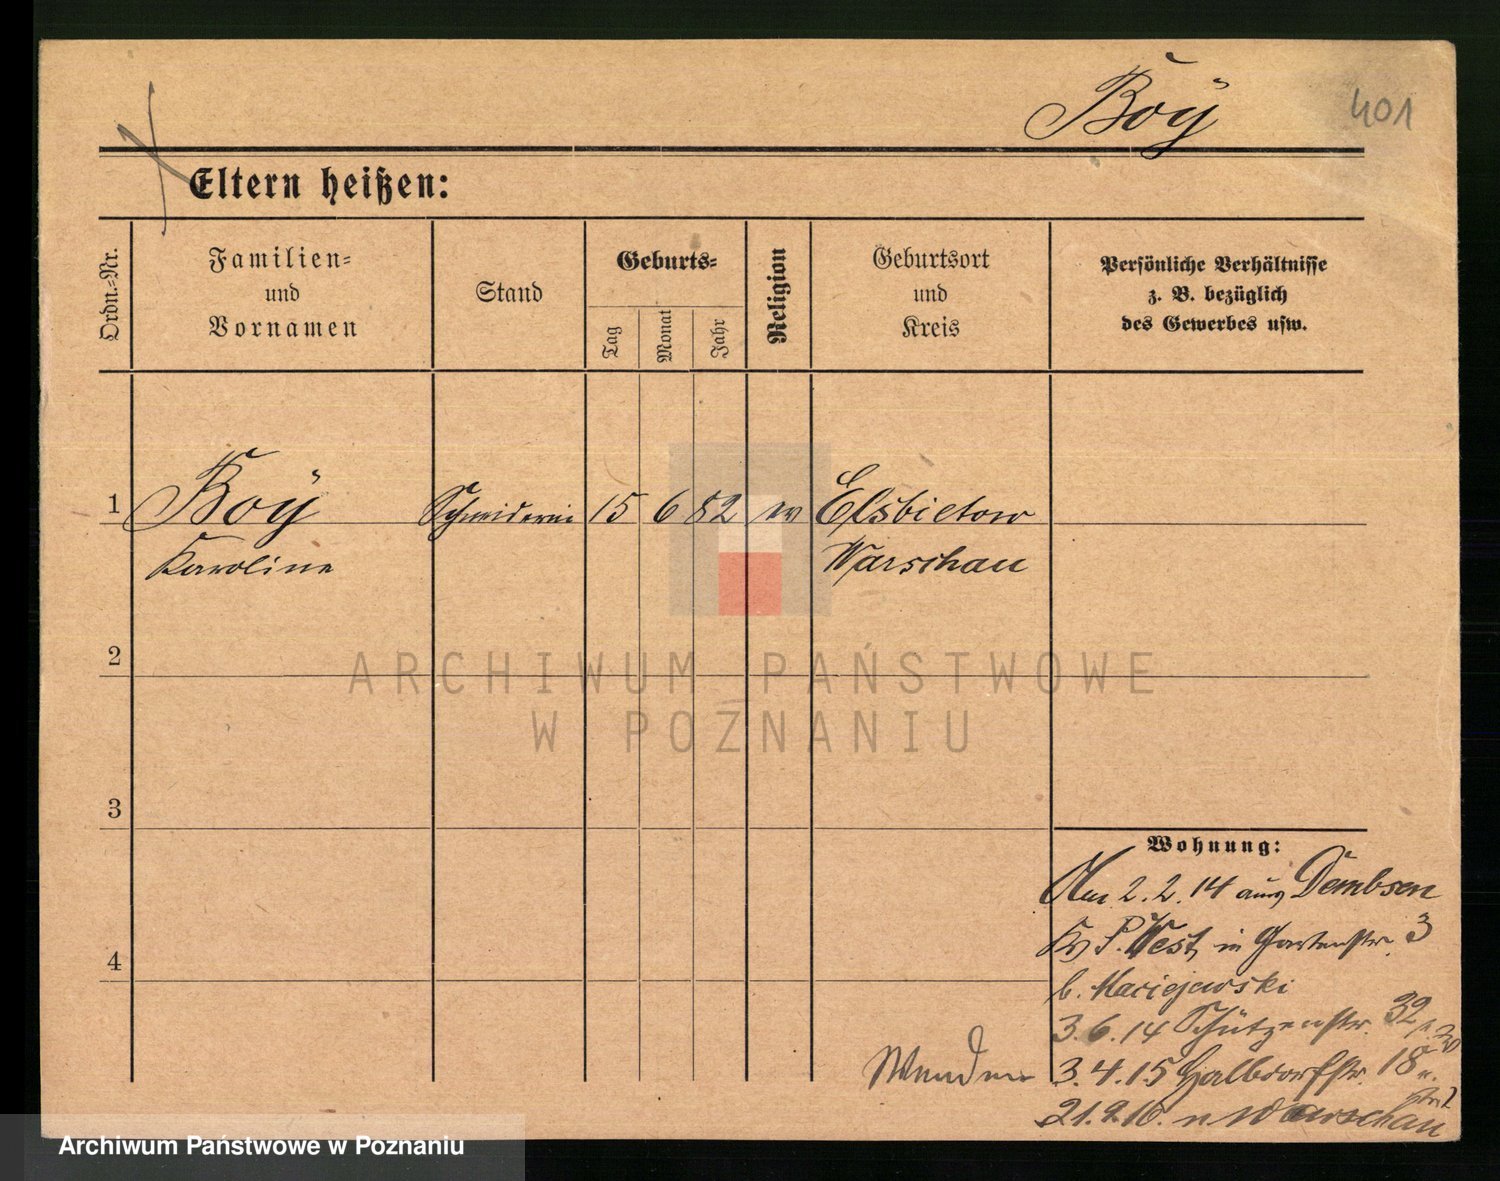 Boÿ
401
Eltern heißen:
Ordn.-Nr.
Familien-
und
Vornamen
Stand
Geburts-
Tag
Monat
Jahr
Religion
Geburtsort
und
Kreis
Persönliche Verhältnisse
z. B. bezüglich
des Gewerbes usw.
1
Boÿ
Schneiderin
15
6
82
ev
Elsbietow
Karoline
Warschau
2
ARCHIWUM PAŃSTWOWE
W POZNANIU
3
Wohnung:
Am 2.2.14 aus Dembsen
P. West in Gartenstr. 3
4
b. Maciejewski
3.6.14 Schützenstr. 32
Wenden
3.4.15 Halbdorfstr. 18
21.9.16. n Warschau
Archiwum Państwowe w Poznaniu